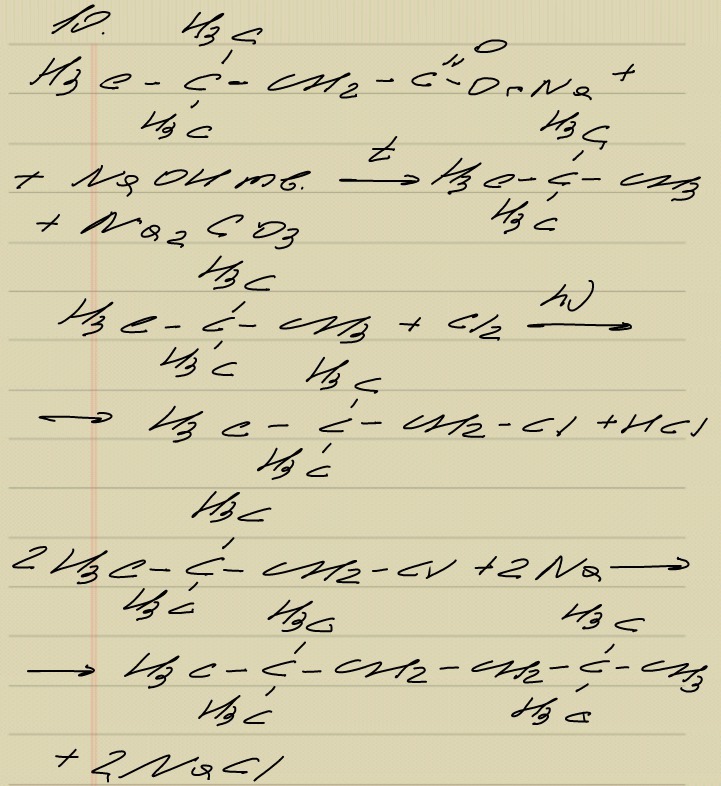 10. H3C
H3C - C - CH2 - C =O - O - Na +
H3C H3C
+ NaOH тв. t → H3C - C - CH3
H3C
+ Na2CO3
H3C
H3C - C - CH3 + Cl2 hν →
H3C H3C
→ H3C - C - CH2 - Cl + HCl
H3C
H3C
2H3C - C - CH2 - Cl + 2Na →
H3C H3C H3C
→ H3C - C - CH2 - CH2 - C - CH3
H3C H3C
+ 2NaCl